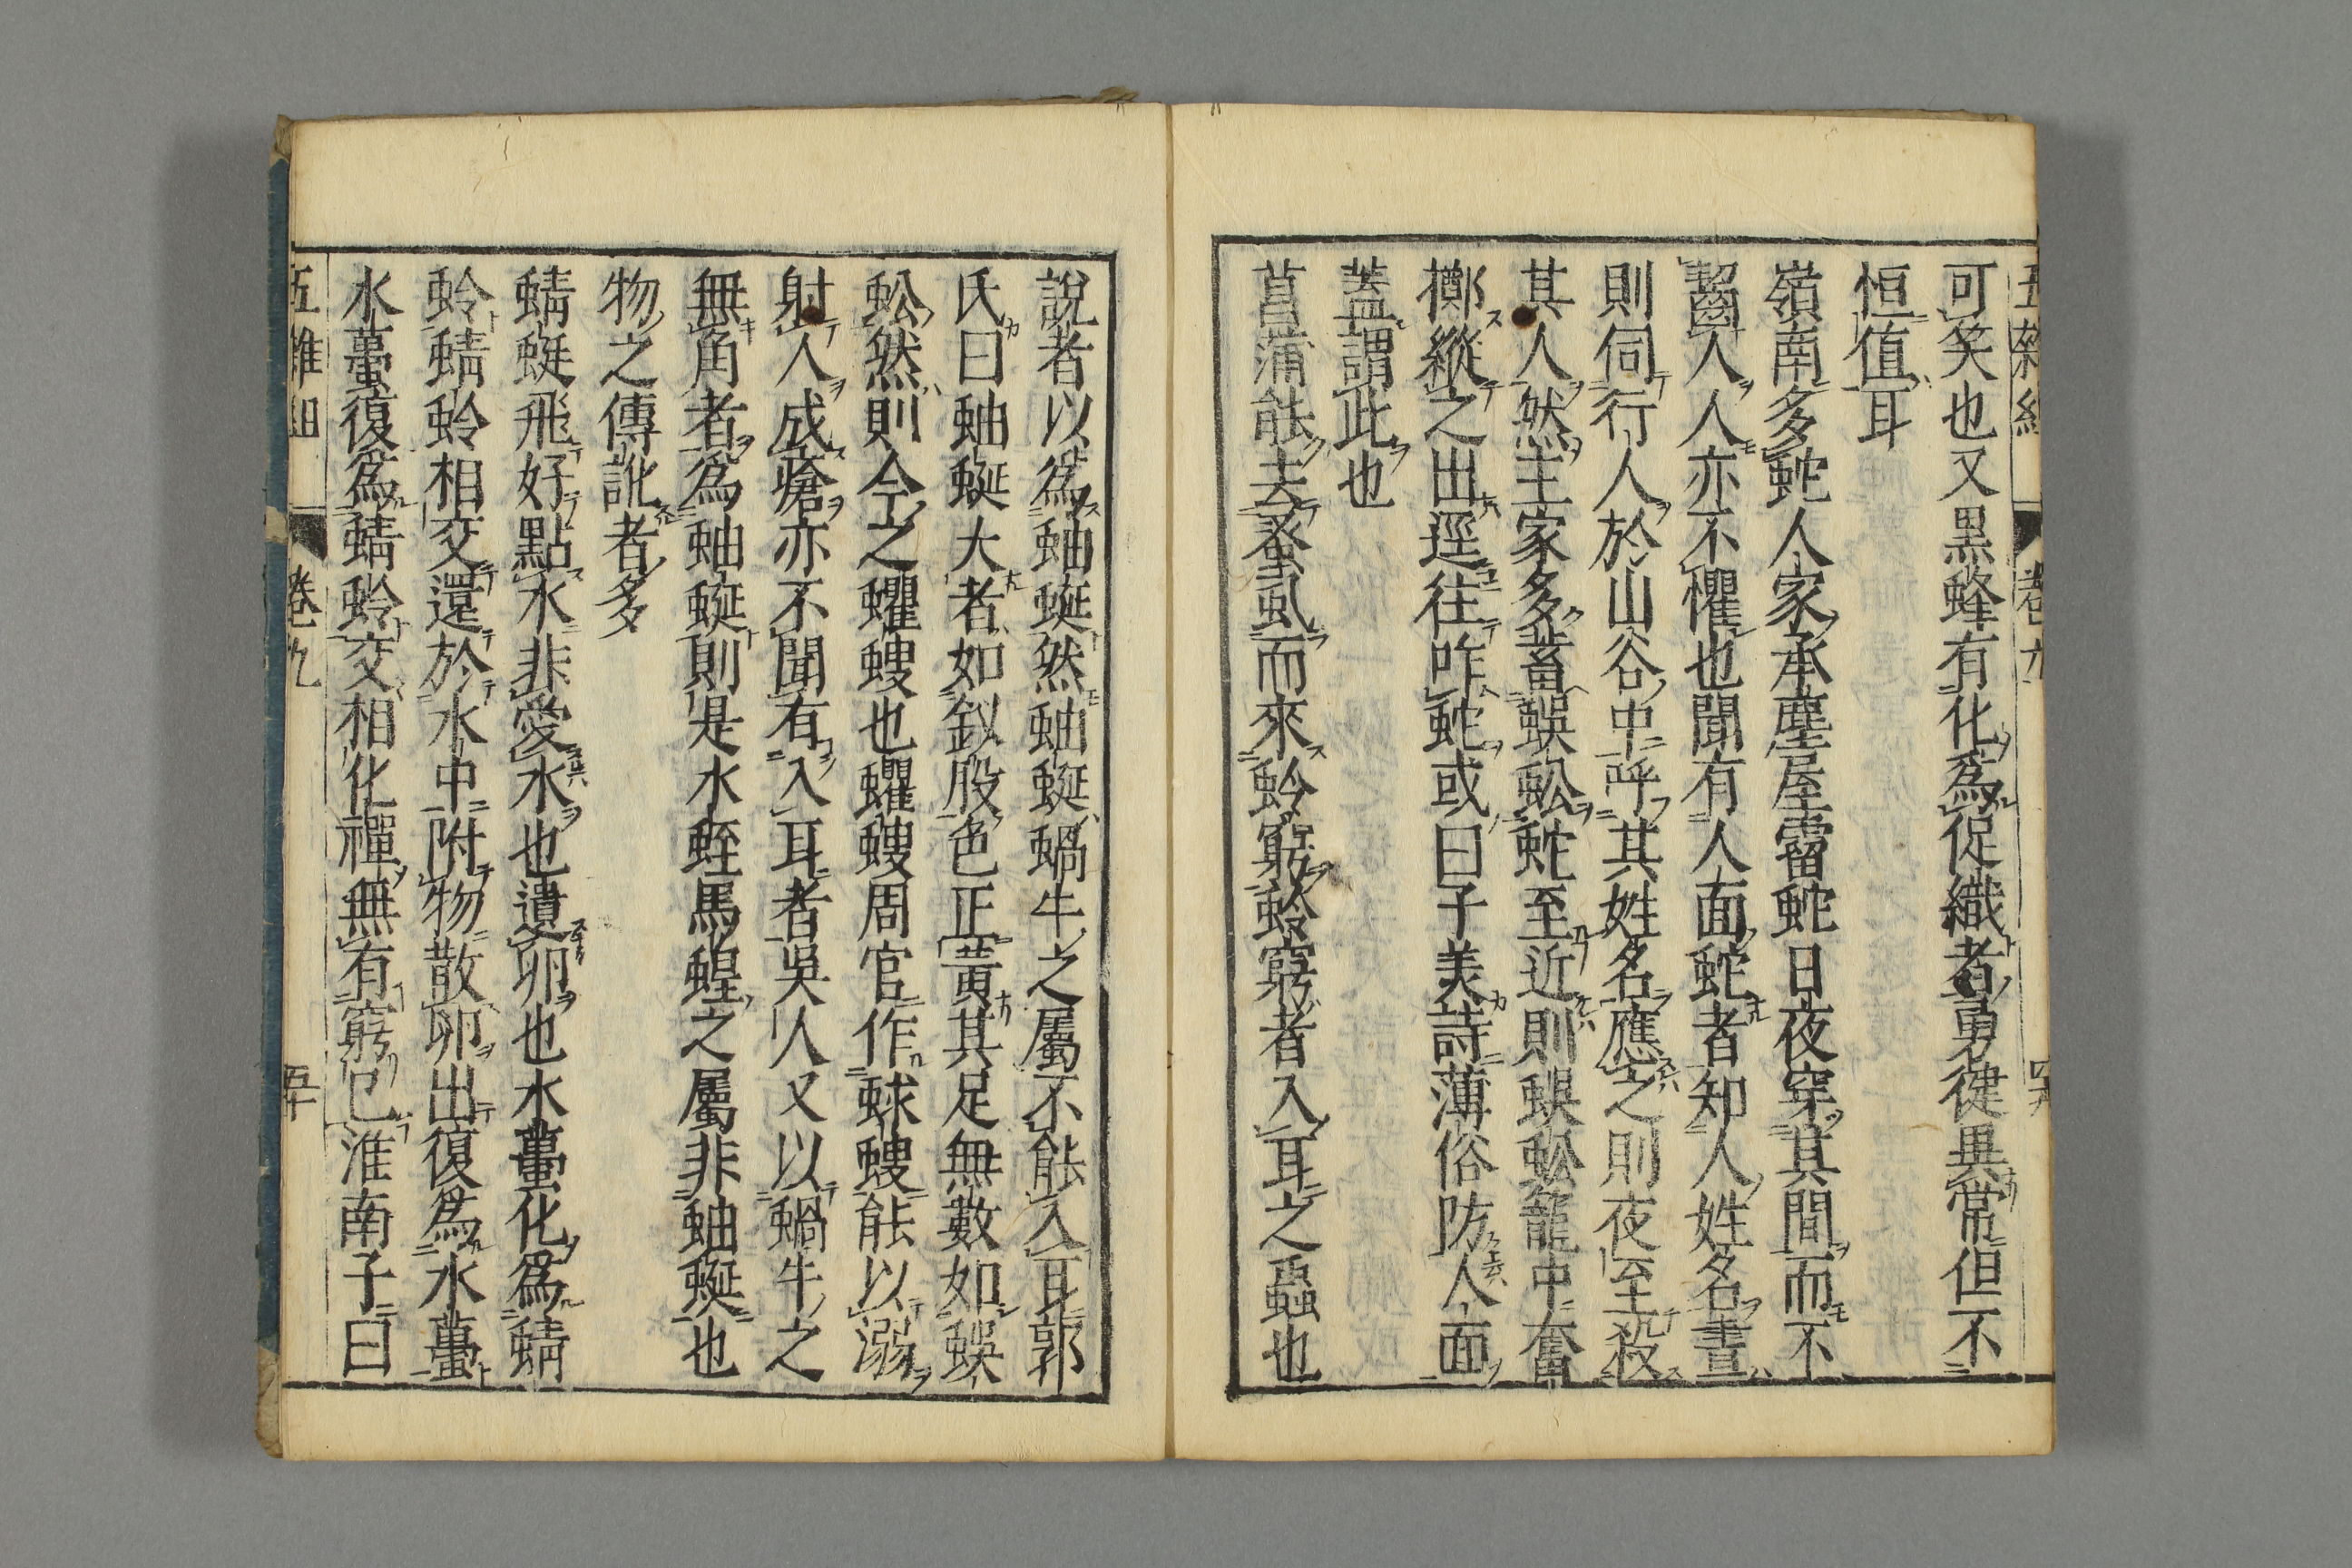 可笑也又黒蜂有化爲促織者勇徤異常但不
恒値耳
嶺南多蛇人家承塵屋霤蛇日夜穿其間而不
齧人人亦不懼也聞有人面蛇者知人姓名晝
則伺行人於山谷中呼其姓名應之則夜至殺
其人然主家多畜蜈蚣蛇至近則蜈蚣籠中奮
擲縱之出逕往咋蛇或曰子美詩薄俗防人面
蓋謂此也
菖蒲能去蚤虱而來蛉窮蛉窮者入耳之蟲也
說者以爲蚰蜒然蚰蜒蝸牛之屬不能入耳郭
氏曰蚰蜒大者如釵股色正黃其足無數如蜈
蚣然則今之蠷螋也蠷螋周官作蛷螋能以溺
射人成瘡亦不聞有入耳者吳人又以蝸牛之
無角者爲蚰蜒則是水蛭馬蝗之屬非蚰蜒也
物之傳訛者多
蜻蜓飛好點水非愛水也遺卵也水蠆化爲蜻
蛉蜻蛉相交還於水中附物散卵出復爲水蠆
水蠆復爲蜻蛉交相化禪無有窮已淮南子曰
五雜組 卷九 五十